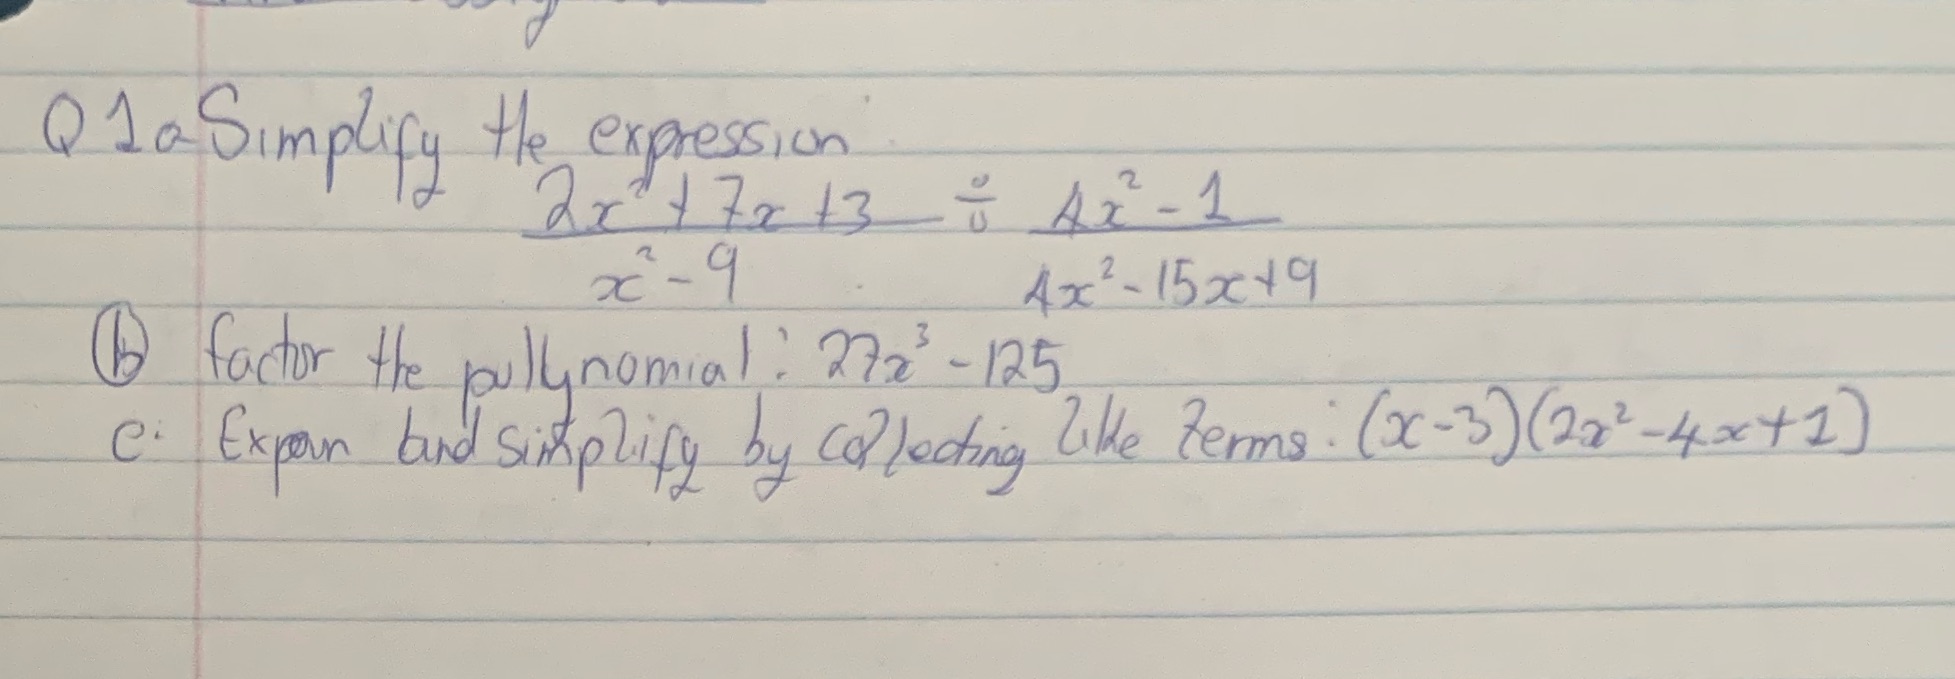 Q1a Simplify the expression
2x² + 7x + 3 ÷ 4x² - 1
x² - 9 4x² - 15x + 9
(b) factor the pullynomial: 27x³ - 125
c: Expan and simplify by collecting like terms: (x-3)(2x² - 4x + 1)